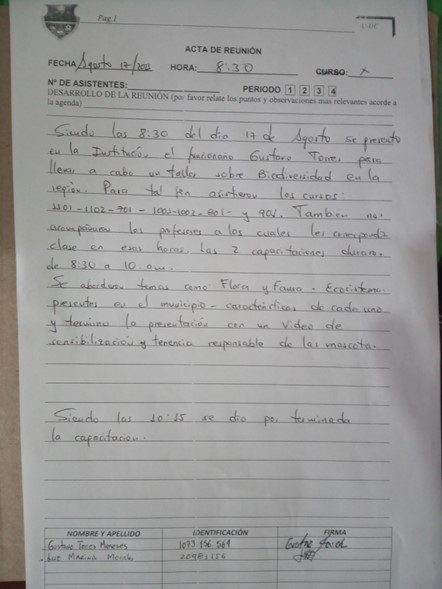 Pag. 1
ACTA DE REUNIÓN
FECHA Agosto 17/2022 HORA: 8:30 CURSO: x
Nº DE ASISTENTES: PERIODO 1 2 3 4
DESARROLLO DE LA REUNIÓN (por favor relate los puntos y observaciones mas relevantes acorde a
la agenda)
Siendo las 8:30 del dia 17 de Agosto se presento
en la Institución el funcionario Gustavo Torres para
llevar a cabo un taller sobre Biodiversidad en la
región. Para tal fin asistieron los cursos:
1101-1102-701-1001-1002-801- y 901. Tambien nos
acompañaron los profesores a los cuales les correspondia
clase en esas horas. Las 2 capacitaciones duraron
de 8:30 a 10 am.
Se abordaron temas como Flora y fauna - Ecosistemas
presentes en el municipio - caracteristicas de cada uno
y termino la presentación con un Video de
sensibilización y tenencia responsable de las mascotas.
Siendo las 10:15 se dio por terminada
la capacitación.
NOMBRE Y APELLIDO IDENTIFICACIÓN FIRMA
Gustavo Torres 1073 176 569
Luz Marina Morales 20983156